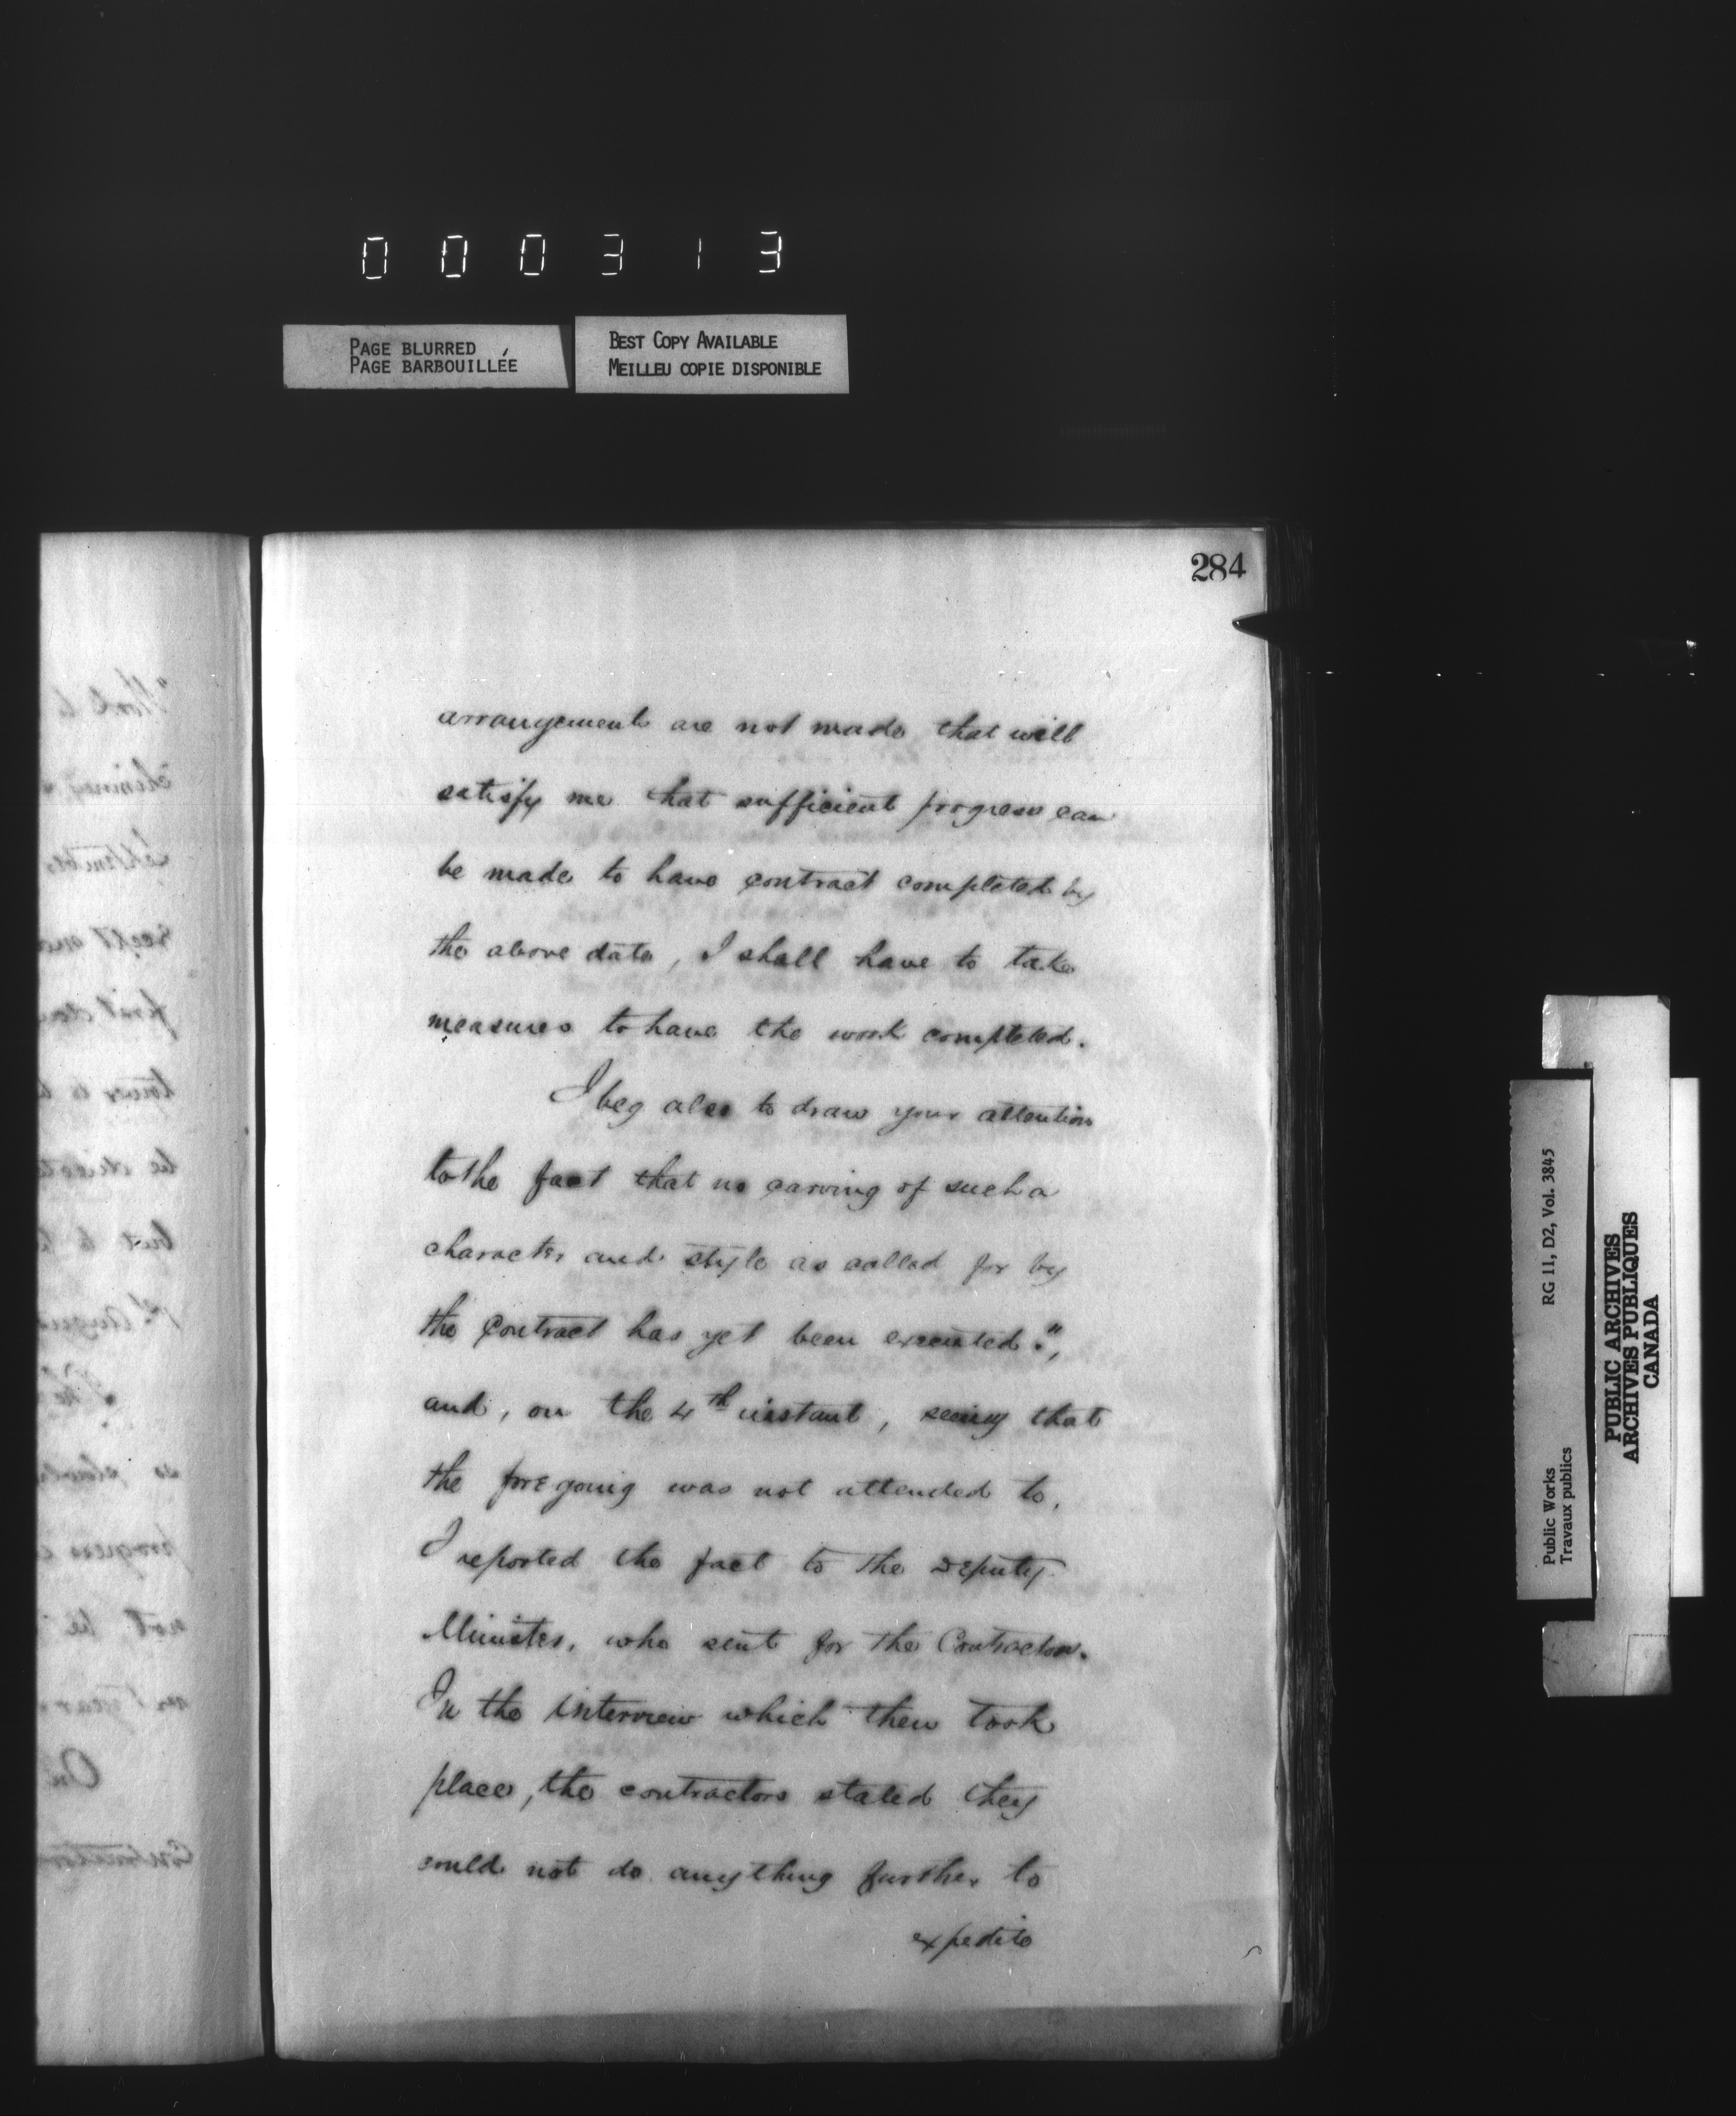 000313
PAGE BLURRED
PAGE BARBOUILLÉE
BEST COPY AVAILABLE
MEILLEU COPIE DISPONIBLE
284
arrangements are not made that will
satisfy me that sufficient progress can
be made to have contract completed by
the above date, I shall have to take
measures to have the work completed.
I beg also to draw your attention
to the fact that no carving of such a
character and style as called for by
the Contract has yet been executed.",
and, on the 4th instant, seeing that
the foregoing was not attended to,
I reported the fact to the Deputy
Minister, who sent for the Contractors.
In the interview which then took
place, the contractors stated they
could not do anything further to
expedite
Public Works
Travaux publics
RG 11, D2, Vol. 3845
PUBLIC ARCHIVES
ARCHIVES PUBLIQUES
CANADA